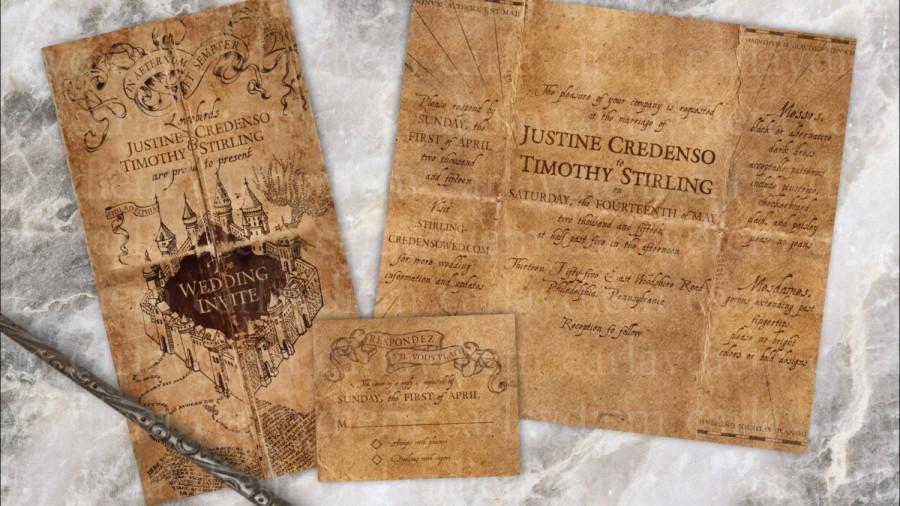 IN AETERNUM
ET SEMPTER
Lovebirds
JUSTINE CREDENSO
&
TIMOTHY STIRLING
are proud to present
PHILADELPHIA
The
WEDDING
INVITE
Please respond by
SUNDAY, the
FIRST of APRIL
two thousand
and fifteen
Visit
STIRLING
CREDENSOWED.COM
for more wedding
information and updates
The pleasure of your company is requested
at the marriage of
JUSTINE CREDENSO
to
TIMOTHY STIRLING
on
SATURDAY, the FOURTEENTH of MAY
two thousand and fifteen
at half past five in the afternoon
Thirteen Fifty-five East Wodshire Road
Philadelphia, Pennsylvania
Reception to follow
Messrs,
black or alternative
dark dress
acceptable patterns
include pinstripe,
checkerboard,
plaid, and paisley
please no jeans
Mesdames,
gowns extending past
fingertips
please no bright
colors or bold designs
RESPONDEZ
S'IL VOUS PLAIT
The favor of a reply is requested by
SUNDAY, the FIRST of APRIL
M